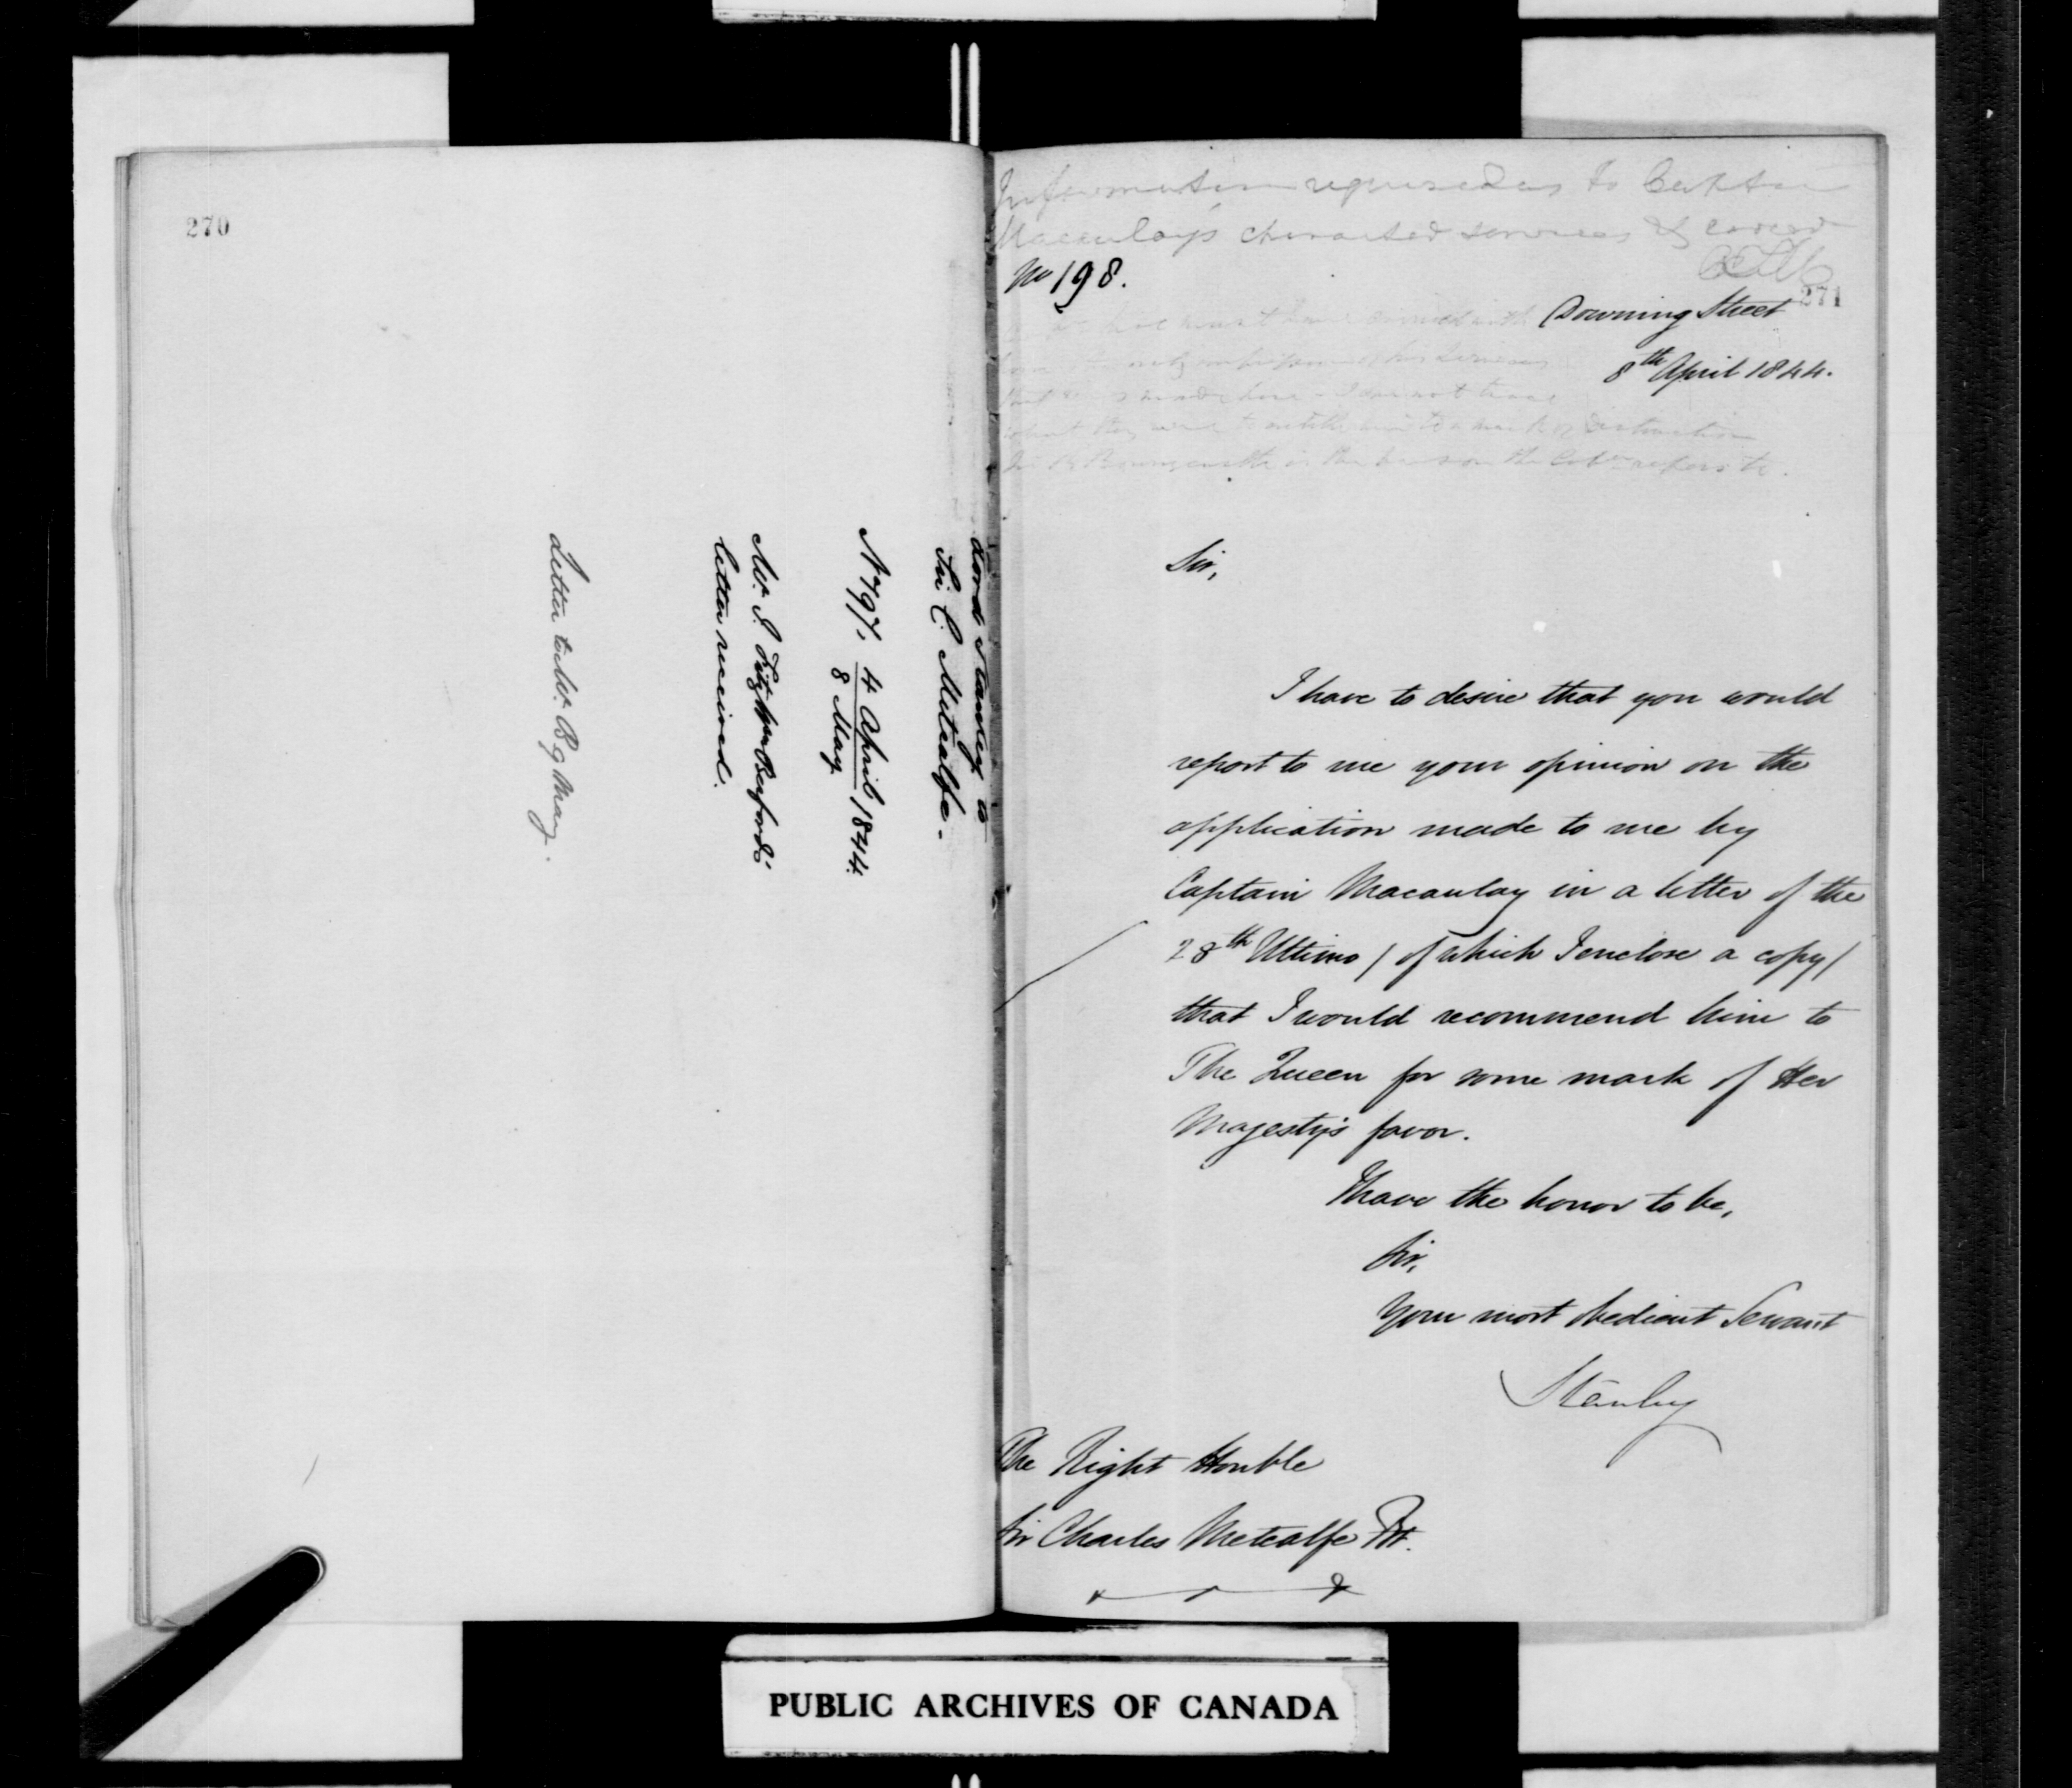 270
Lord Stanley to
Sir C. Metcalfe.
No 197. 4 April 1844.
8 May
Mr. J. Fitz
letter received.
Letter to Mr. B 9 May.
Information required as to Captain
Macaulay's character services &
No 198.
271
Downing Street
8th April 1844.
Sir,
I have to desire that you would
report to me your opinion on the
application made to me by
Captain Macaulay in a letter of the
28th Ultimo / of which I enclose a copy /
that I would recommend him to
The Queen for some mark of Her
Majesty's favor.
I have the honor to be,
Sir,
Your most obedient Servant
Stanley
The Right Honble
Sir Charles Metcalfe Bt.
PUBLIC ARCHIVES OF CANADA